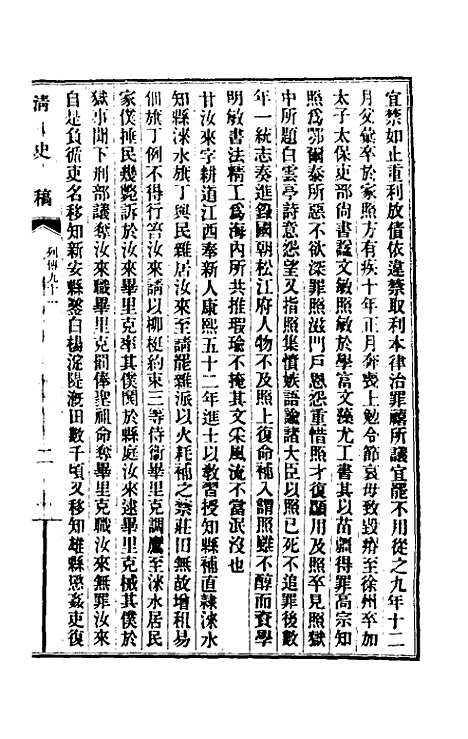 宜禁如止重利放債依違禁取利本律治罪禧所議宜罷不用從之九年十二
月父彙卒於家照方有疾十年正月奔喪上勉令節哀毋致毀瘠至徐州卒加
太子太保吏部尚書諡文敏照敏於學富文藻尤工書其以苗疆得罪高宗知
照爲鄂爾泰所惡不欲深罪照滋門戶恩怨重惜照才復顯用及照卒見照獄
中所題白雲亭詩意怨望又指照集憤嫉語諭諸大臣以照已死不追罪後數
年一統志奏進錄國朝松江府人物不及照上復命補入謂照雖不醇而資學
明敏書法精工爲海內所共推瑕瑜不掩其文采風流不當泯沒也
甘汝來字耕道江西奉新人康熙五十二年進士以教習授知縣補直隷淶水
知縣淶水旗丁與民雜居汝來至請罷雜派以火耗補之禁莊田無故增租易
佃旗丁例不得行笞汝來請以柳梃約束三等侍衞畢里克調鷹至淶水居民
家僕捶民幾斃訴於汝來畢里克率其僕鬨於縣庭汝來逮畢里克械其僕於
獄事聞下刑部議奪汝來職畢里克罰俸聖祖命奪畢里克職汝來無罪汝來
自是負循吏名移知新安縣鑿白楊淀隄漑田數千頃又移知雄縣懲姦吏復
清史稿
列傳九十一
二